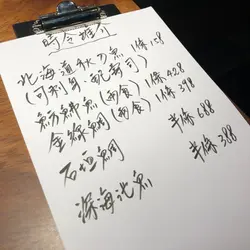 時令推介
北海道秋刀魚 1條158
(可刺身 或壽司)
新鮮魚(兩食) 1條428
金線鯛(兩食) 1條398
石垣鯛 半條688
深海池魚 半條388